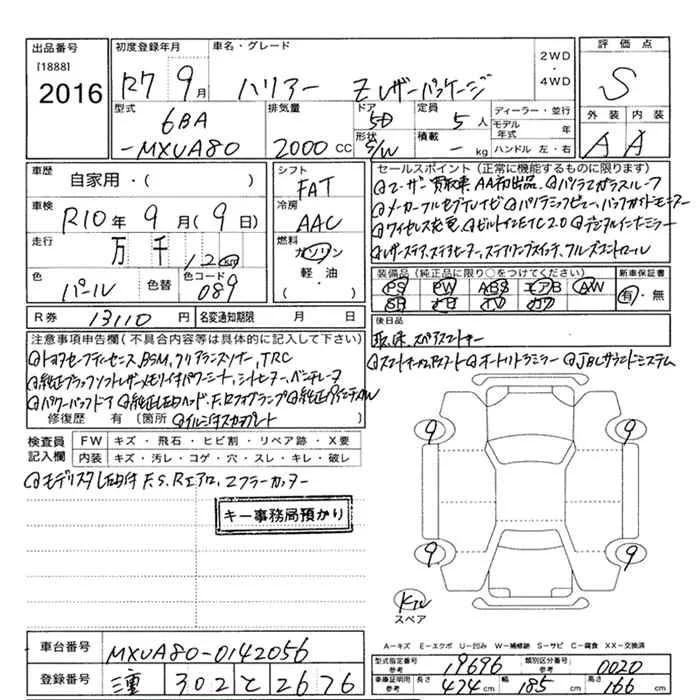 出品番号 初度登録年月 車名・グレード 2WD 評価点
[1888] R7 9月 ハリアー Zレザーパッケージ 4WD S
2016
型式 排気量 ドア 定員 ディーラー・並行 外装 内装
6BA 5D 5人 モデル年式 年 A A
-MXUA80 2000CC 形状 S/W 積載 -kg ハンドル 左・右
車歴 自家用・( ) シフト FAT セールスポイント(正常に機能するものに限ります)
◎ユーザー買取車、AA初出品、◎パノラマガラスルーフ
車検 R10年9月(9日) 冷房 AAC ◎メーカーフルセグTVナビ◎パノラミックビュー、バックガイドモニター
◎ワイヤレス充電◎ビルトインETC2.0◎デジタルインナーミラー
走行 万千120km 燃料 ガソリン ◎レザーステア、ステアヒーター、ステアリングスイッチ、クルーズコントロール
軽油
・( )
色 パール 色替 色コード 089 装備品(純正品に限り○をつけてください) 新車保証書
PS PW ABS エアB AW 有・無
SR ナビ TV カワ
R券 13110円 名変通知期限 月 日 後日品
取、保、スペアスマートキー
注意事項申告欄(不具合内容等は具体的に記入して下さい)
◎トヨタセーフティセンス、BSM、クリアランスソナー、TRC ◎スマートキー◎オートリトラミラー◎JBLサラウンドシステム
◎純正ブラックソフトレザーメモリ付きパワーシート、シートヒーター、ベンチレータ
◎パワーバックドア◎純正LEDヘッド、F.Rフォグランプ◎純正19インチAW
修復歴 有 [箇所 ◎イルミ付スカッフプレート ]
検査員記入欄 FW キズ・飛石・ヒビ割・リペア跡・X要
内装 キズ・汚レ・コゲ・穴・スレ・キレ・破レ
◎モデリスタLED付F.S.Rエアロ、マフラーカッター
キー事務局預かり
9 9
9 9
スペア
A－キズ E－エクボ U－凹み W－補修跡 S－サビ C－腐食 XX－交換済
車台番号 MXUA80-0142056 型式指定番号 参考 19696 類別区分番号 参考 0020
登録番号 302 と 2676 車庫証明用 参考 長さ 474cm 幅 185cm 高さ 166cm